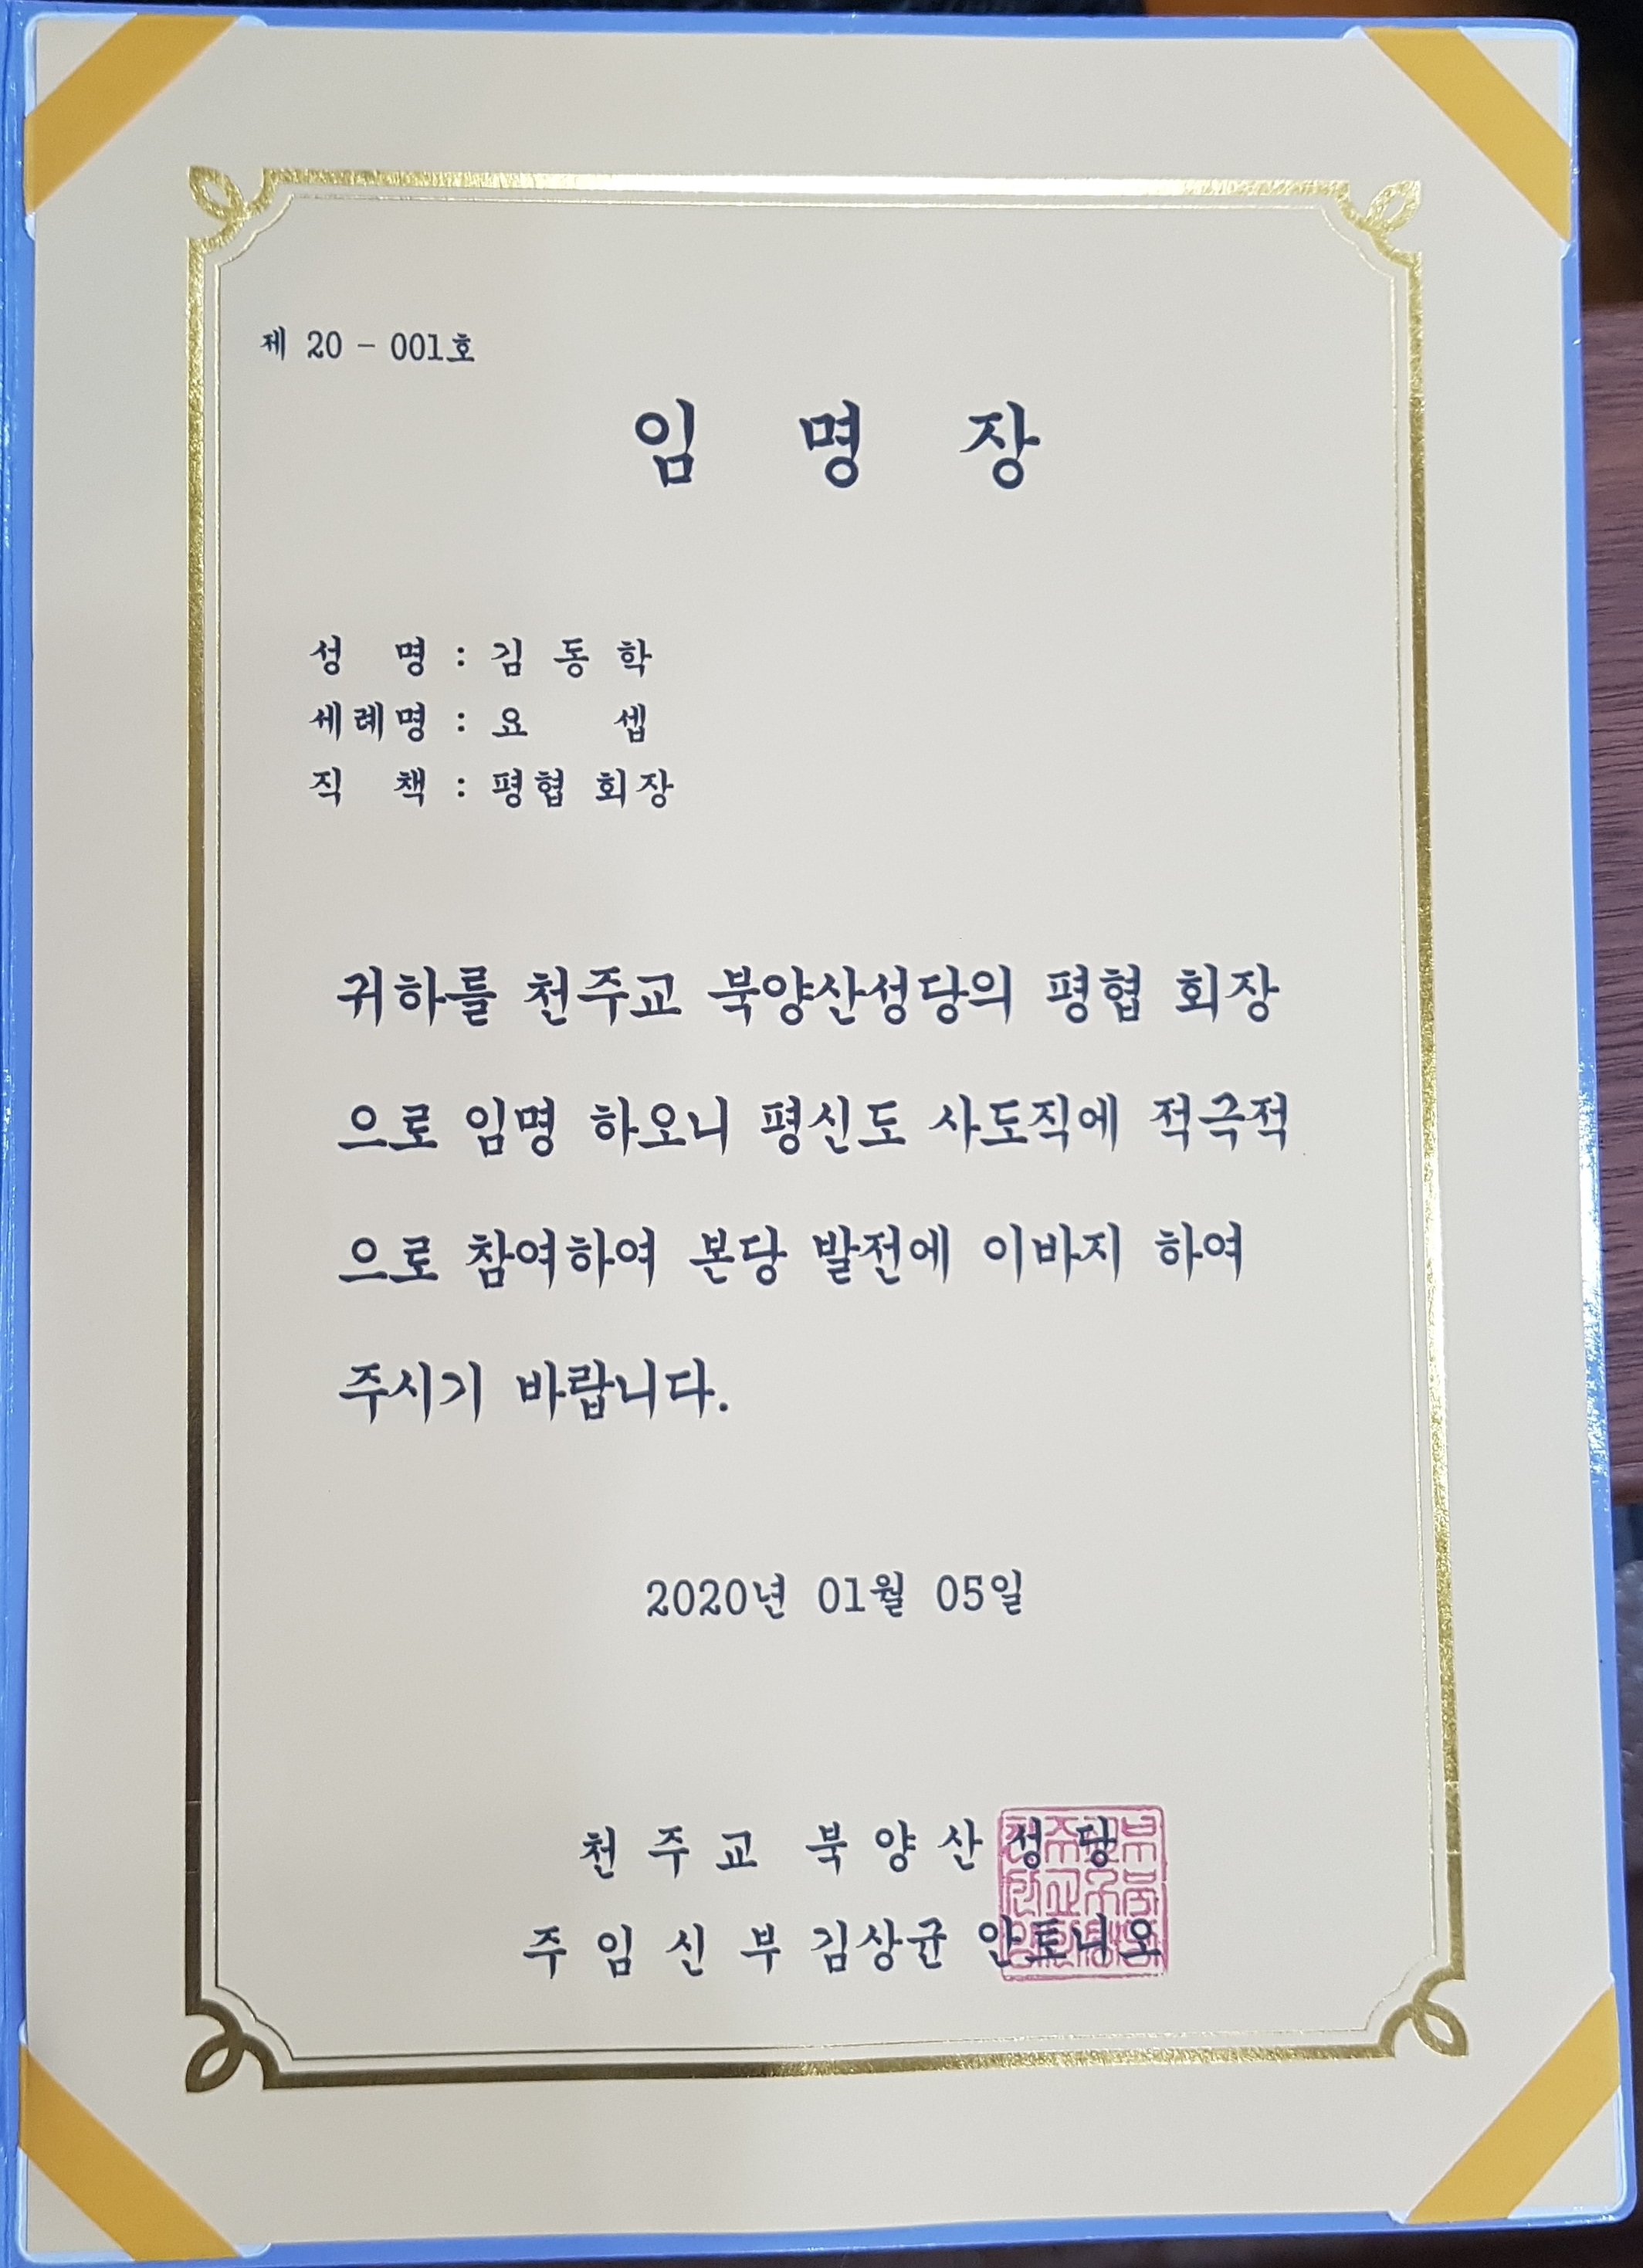 제 20 - 001호
임 명 장
성 명 : 김 동 학
세례명 : 요 셉
직 책 : 평협 회장
귀하를 천주교 북양산성당의 평협 회장
으로 임명 하오니 평신도 사도직에 적극적
으로 참여하여 본당 발전에 이바지 하여
주시기 바랍니다.
2020년 01월 05일
천 주 교 북 양 산 성 당
주 임 신 부 김상균 안토니오